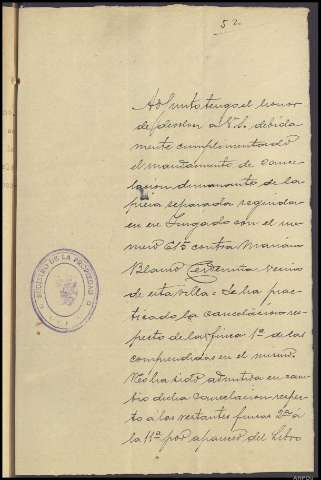 52
Adjunto tengo el honor
de devolver a V.S. debida
mente cumplimentado
el mandamiento de cance
lacion dimanante de la
pieza separada seguida
en ese Juzgado con el nu
mero 215 contra Mariano
Blanco Cerdeña vecino
de esta villa = Se ha prac
ticado la cancelacion res
pecto de la finca 1ª de las
comprendidas en el mismo.
No ha sido admitida en cam
bio dicha cancelacion respec
to á las restantes fincas 2ª a
la 11ª por aparecer del libro
REGISTRO DE LA PROPIEDAD